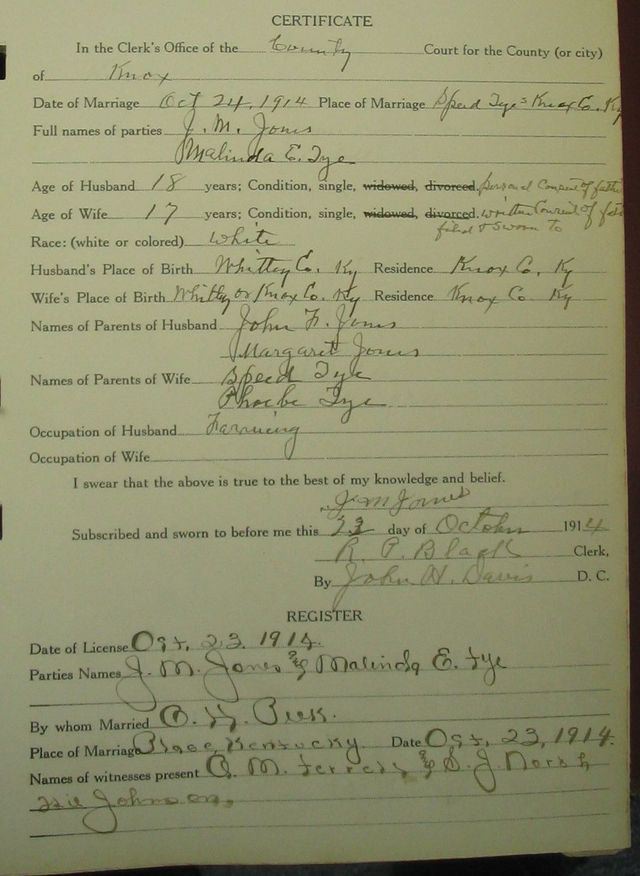 CERTIFICATE
In the Clerk's Office of the County Court for the County (or city)
of Knox
Date of Marriage Oct 24, 1914 Place of Marriage Speed Tye's Knox Co. Ky
Full names of parties J. M. Jones
Malinda E. Tye
Age of Husband 18 years; Condition, single, widowed, divorced. personal Consent of
Age of Wife 17 years; Condition, single, widowed, divorced. written Consent of
filed & sworn to
Race: (white or colored) White
Husband's Place of Birth Whitley Co. Ky Residence Knox Co, Ky
Wife's Place of Birth Whitley or Knox Co. Ky Residence Knox Co Ky
Names of Parents of Husband John F. Jones
Margaret Jones
Names of Parents of Wife Speed Tye
Phoebe Tye
Occupation of Husband Farming
Occupation of Wife
I swear that the above is true to the best of my knowledge and belief.
J M Jones
Subscribed and sworn to before me this 23 day of October 1914
R. P. Black Clerk,
By John H. Davis D. C.
REGISTER
Date of License Oct, 23, 1914.
Parties Names J. M. Jones & Malinda E. Tye
By whom Married Peek.
Place of Marriage Kentucky. Date Oct, 23, 1914.
Names of witnesses present M. & S. J.
Johnson,